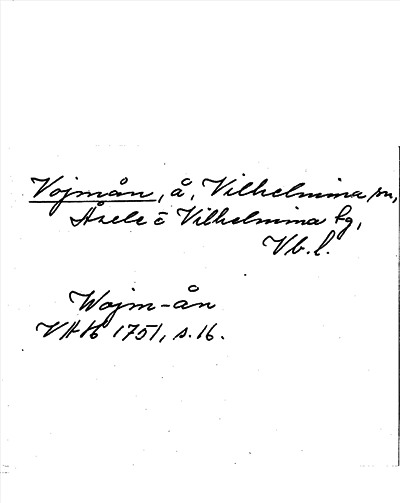 Vojmån, å, Vilhelmina sn,
Åsele o Vilhelmina tg,
Vb.l.
Wojm-ån
VAH 1751, s.16.